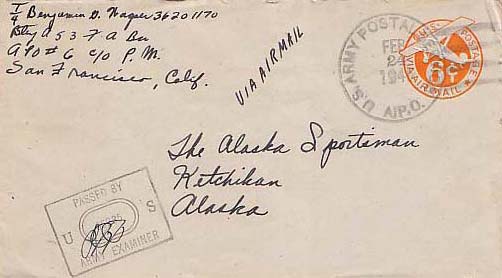 T/4 Benjamin D. Wagner 36201170
Btry A 53 F A Bn
APO # 6 c/o P. M.
San Francisco, Calif.
VIA AIRMAIL
U.S. ARMY POSTAL
FEB
24
194
A.P.O.
U.S. POSTAGE
6¢
VIA AIR MAIL
The Alaska Sportsman
Ketchikan
Alaska
PASSED BY
U S
ARMY EXAMINER